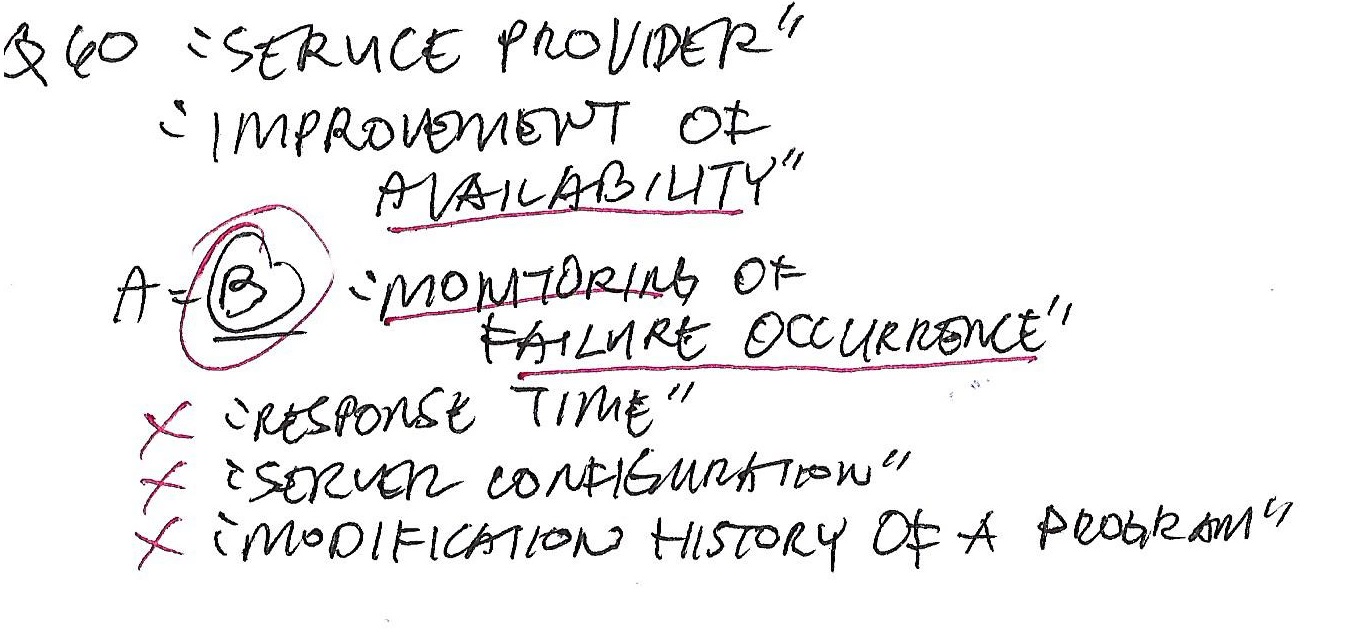 Q 60 "SERVICE PROVIDER"
"IMPROVEMENT OF
AVAILABILITY"
A = B "MONITORING OF
FAILURE OCCURRENCE"
X "RESPONSE TIME"
X "SERVER CONFIGURATION"
X "MODIFICATION HISTORY OF A PROGRAM"